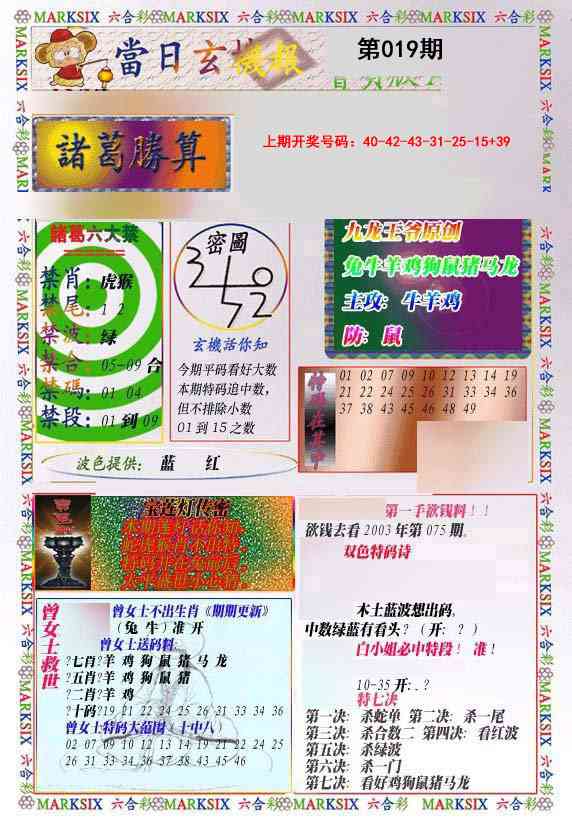 MARKSIX 六合彩 MARKSIX 六合彩 MARKSIX 六合彩 MARKSIX 六合彩
當日玄機報
第019期
諸葛勝算
上期开奖号码：40-42-43-31-25-15+39
諸葛六大禁
禁肖：虎猴
禁尾：1 2
禁波：绿
禁合：05-09 合
禁碼：01 04
禁段：01 到 09
密圖
玄機活你知
今期平码看好大数
本期特码追中数，
但不排除小数
01 到 15 之数
九龙王爷原创
兔牛羊鸡狗鼠猪马龙
主攻：牛羊鸡
防：鼠
特码在其中
01 02 07 09 10 12 13 14 19
21 22 24 25 26 31 33 34 36
37 38 43 45 46 48 49
波色提供： 蓝 红
宝莲灯传密
第一手欲钱料！！
欲钱去看 2003 年第 075 期。
双色特码诗
木土蓝波想出码，
中数绿蓝有看头？（开：？）
白小姐必中特段！ 准！
10-35 开：.？
特七决
第一决：杀蛇单 第二决：杀一尾
第三决：杀合数二 第四决：看红波
第五决：杀绿波
第六决：杀一门
第七决：看好鸡狗鼠猪马龙
曾女士救世
曾女士不出生肖《期期更新》
（兔 牛）准 开
曾女士送码料:
?七肖?羊 鸡 狗 鼠 猪 马 龙
?五肖?羊 鸡 狗 鼠 猪
?二肖?羊 鸡
?十码?19 21 22 24 25 26 31 33 34 36
曾女士特码大范围（十中八）
02 07 09 10 12 13 14 19 21 22 24 25
26 31 33 34 36 37 38 43 45 46
MARKSIX 六合彩 MARKSIX 六合彩 MARKSIX 六合彩 MARKSIX 六合彩 MARKSIX 六合彩